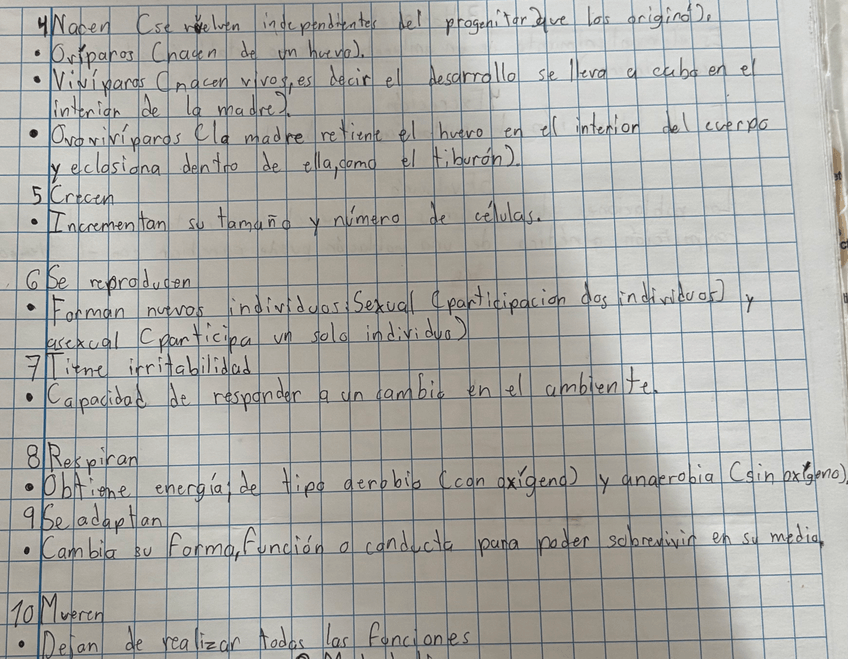 4 Nacen (se vuelven independientes del progenitor que los originó).
• Ovíparos (nacen de un huevo).
• Vivíparos (nacen vivos, es decir el desarrollo se lleva a cabo en el
interior de la madre).
• Ovovivíparos (la madre retiene el huevo en el interior del cuerpo
y eclosiona dentro de ella, como el tiburón).
5 Crecen
• Incrementan su tamaño y número de células.
6 Se reproducen
• Forman nuevos individuos: Sexual (participacion dos individuos) y
asexual (participa un solo individuo)
7 Tiene irritabilidad
• Capacidad de responder a un cambio en el ambiente.
8 Respiran
• Obtiene energía; de tipo aerobio (con oxígeno) y anaerobia (sin oxígeno).
9 Se adaptan
• Cambia su forma, función o conducta para poder sobrevivir en su medio.
10 Mueren
• Dejan de realizar todas las funciones